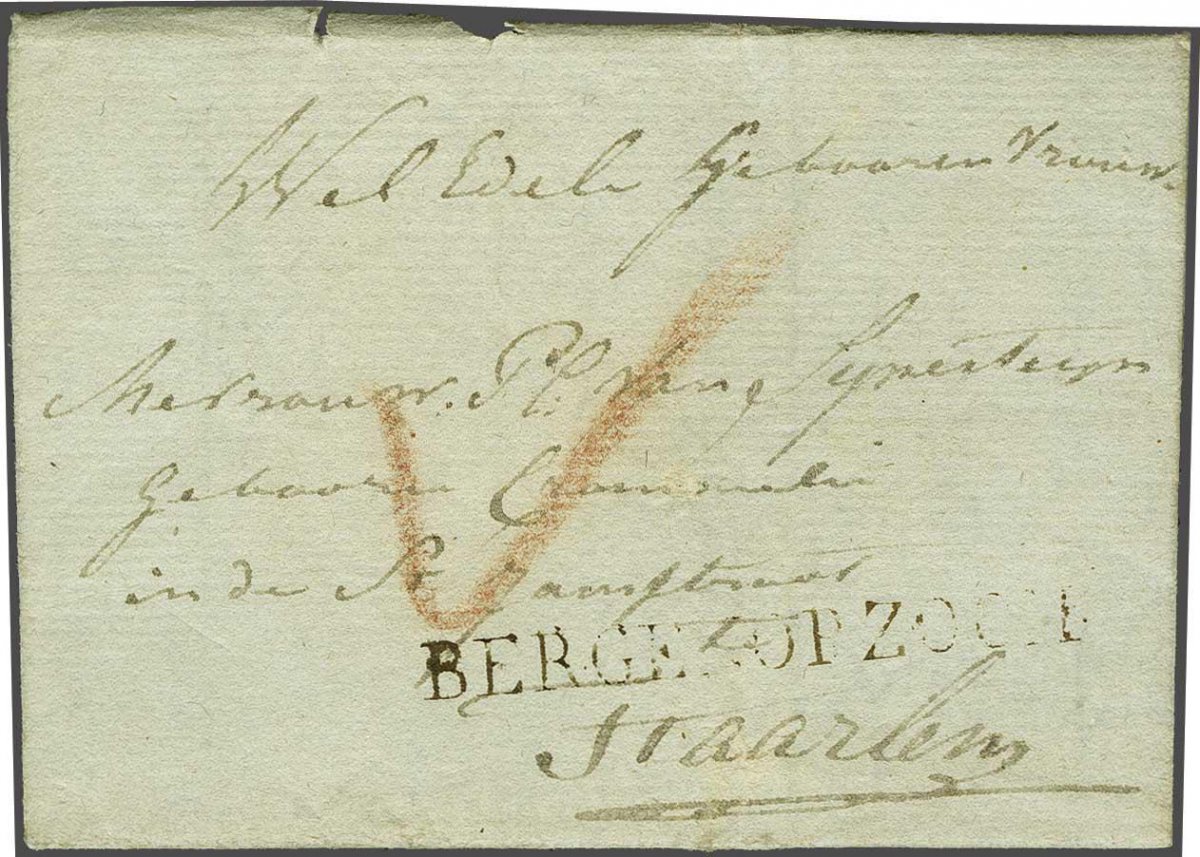 Wel Edele Gebooren Vrouw.
Mevrouw. P. C. van Sypesteijn
Gebooren Commelin
in de St Jansstraat
te
BERGEN OP ZOOM
Haarlem